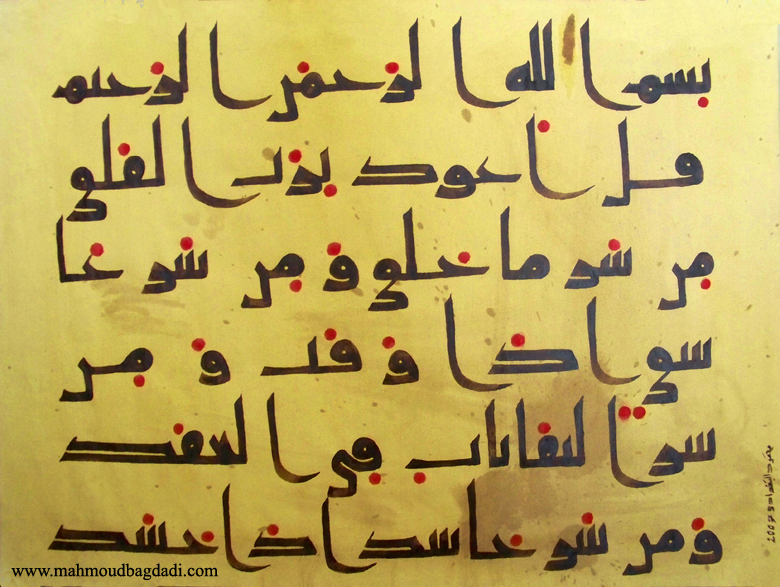 بسم الله الرحمن الرحيم
قل اعوذ برب الفلق
من شر ما خلق و من شر غا
سق اذا وقب و من
شر النفاثات في العقد
و من شر حاسد اذا حسد
محمود البغدادي
www.mahmoudbagdadi.com